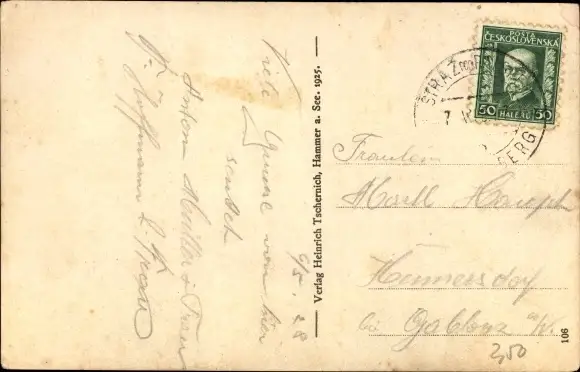 Viele Grüsse von hier
sendet
Anton Müller u Frau
Hoffmann u. Frau
6/5. 28
Verlag Heinrich Tschernich, Hammer a. See. 1925.
POSTA
ČESKOSLOVENSKÁ
50 HALÉŘŮ 50
STRÁŽ POD
BERG
Fräulein
Hennersdorf
bei Gablonz a/N.
106
3,50